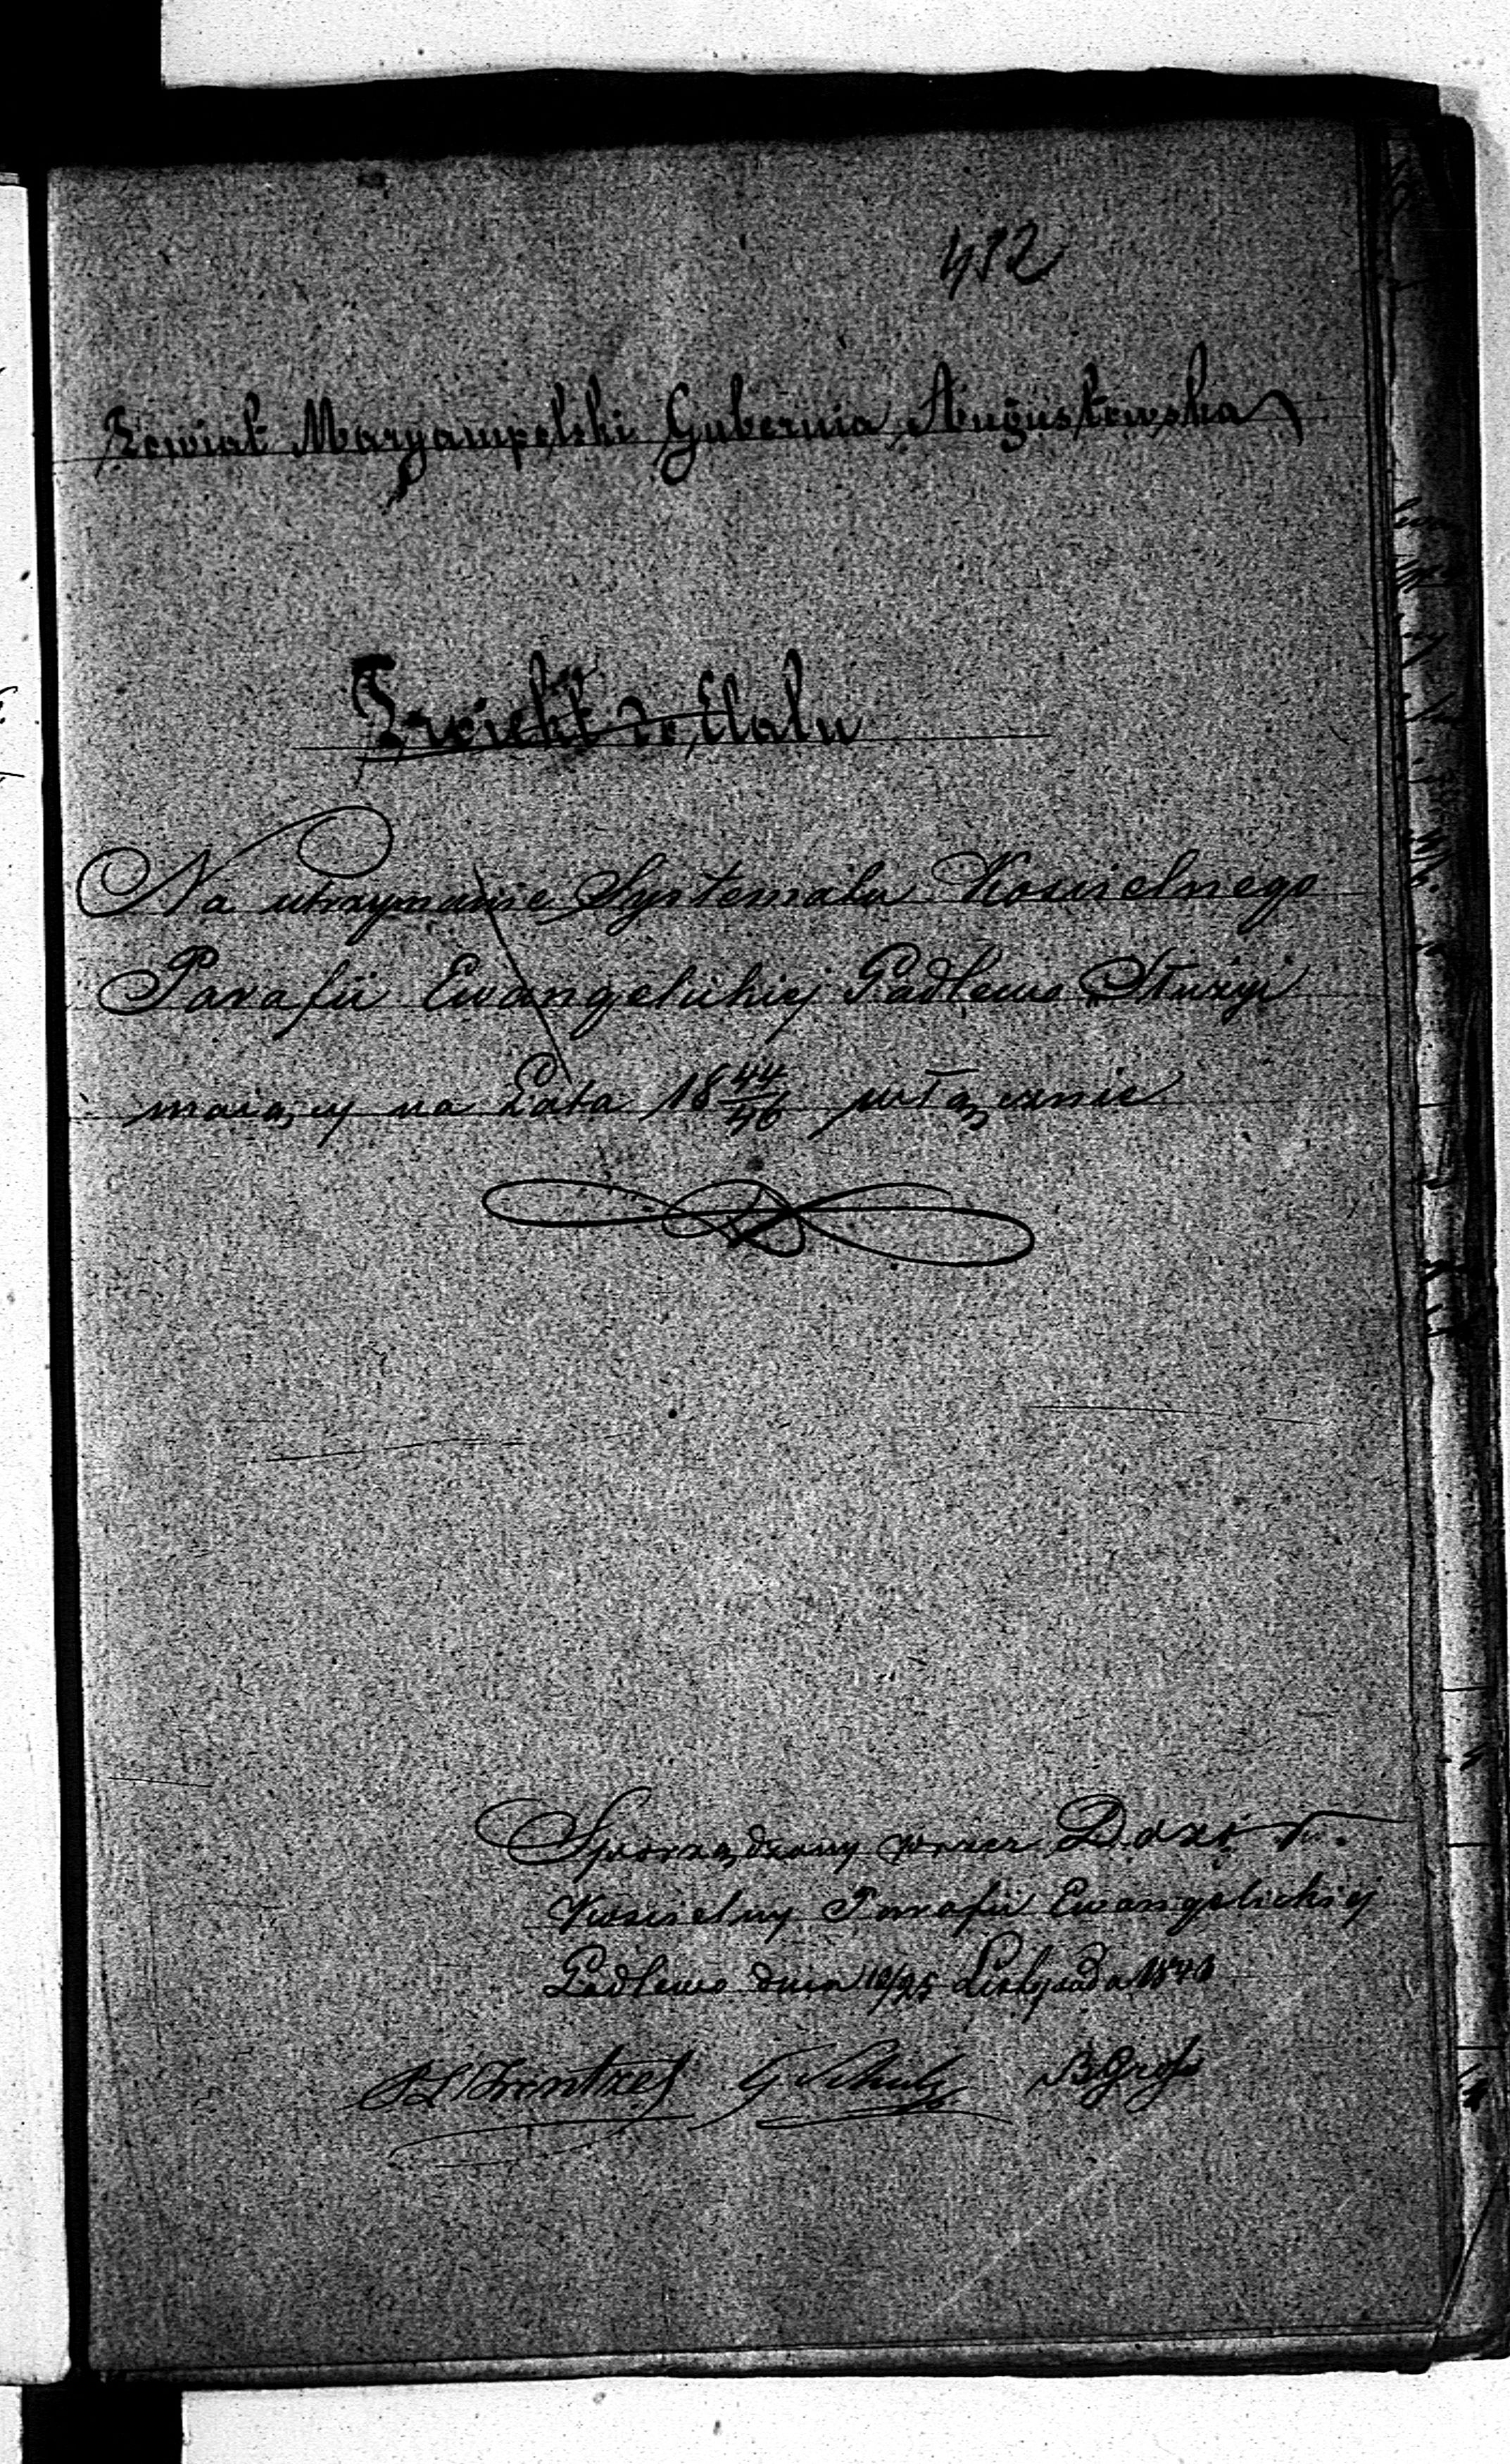 432
Powiat Maryampolski Gubernia Augustowska
Proiekt do Etatu
Na utrzymanie Systematu Kościelnego
Parafii Ewangelickiej Godlewo Służyć
maiący na Lata 18 44/46 włącznie
Sporządzony przez Dozór
Kościelny Parafii Ewangelickiej
Godlewo dnia /25 Listopada
G Schulz BGroß